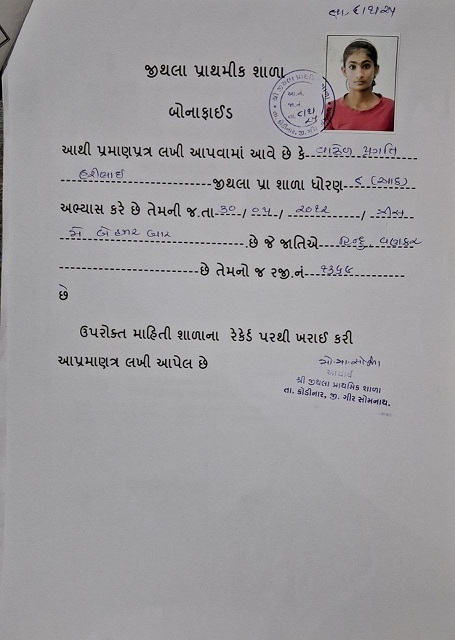 તા. ૬/૭/૨૪
જીથલા પ્રાથમીક શાળા
બોનાફાઈડ
આથી પ્રમાણપ્રત્ર લખી આપવામાં આવે છે કે વાઢેળ પ્રગતિ
હરીભાઈ જીથલા પ્રા શાળા ધોરણ ૮ (આઠ)
અભ્યાસ કરે છે તેમની જ.તા ૩૦ / ૦૫ / ૨૦૧૨ / ત્રીસ
મે બે હજાર બાર છે જે જાતિએ હિન્દુ વણકર
છે તેમનો જ રજી.નં ૧૩૫૬
છે
ઉપરોક્ત માહિતી શાળાના રેકેર્ડ પરથી ખરાઈ કરી
આપ્રમાણત્ર લખી આપેલ છે
આચાર્ય
શ્રી જીથલા પ્રાથમિક શાળા
તા. કોડીનાર, જી. ગીર સોમનાથ.